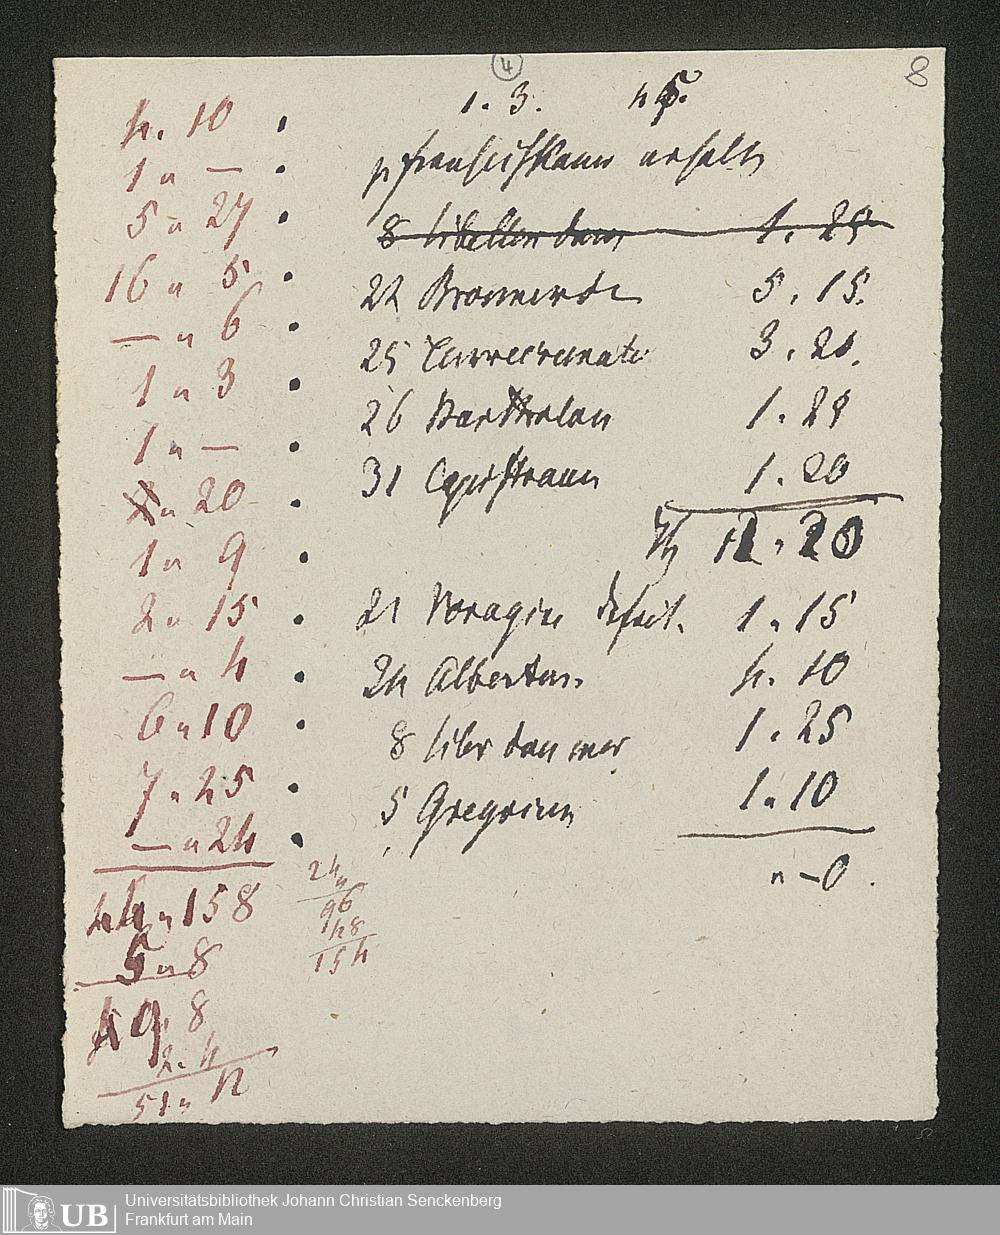 4
8
1. 3. 45.
erhalten
8 libellen dam 1. 25
22 5. 15.
25 3. 20.
26 Bartholom 1. 25
31 Capistranu 1. 20
12. 20
21 Voragine defect. 1. 15
24 Albertus 4. 10
8 liber dan mer 1. 25
5 Gregorium 1 " 10
" - 0.
4. 10
1 " —
5 " 27
16 " 5
— " 6
1 " 3
1 " —
" 20
1 " 9
2 " 15
— " 4
6 " 10
7 " 25
— " 24
44 " 158
5 " 8
49. 8
2. 4
51 " 12
24
96
48
154
UB
Universitätsbibliothek Johann Christian Senckenberg
Frankfurt am Main